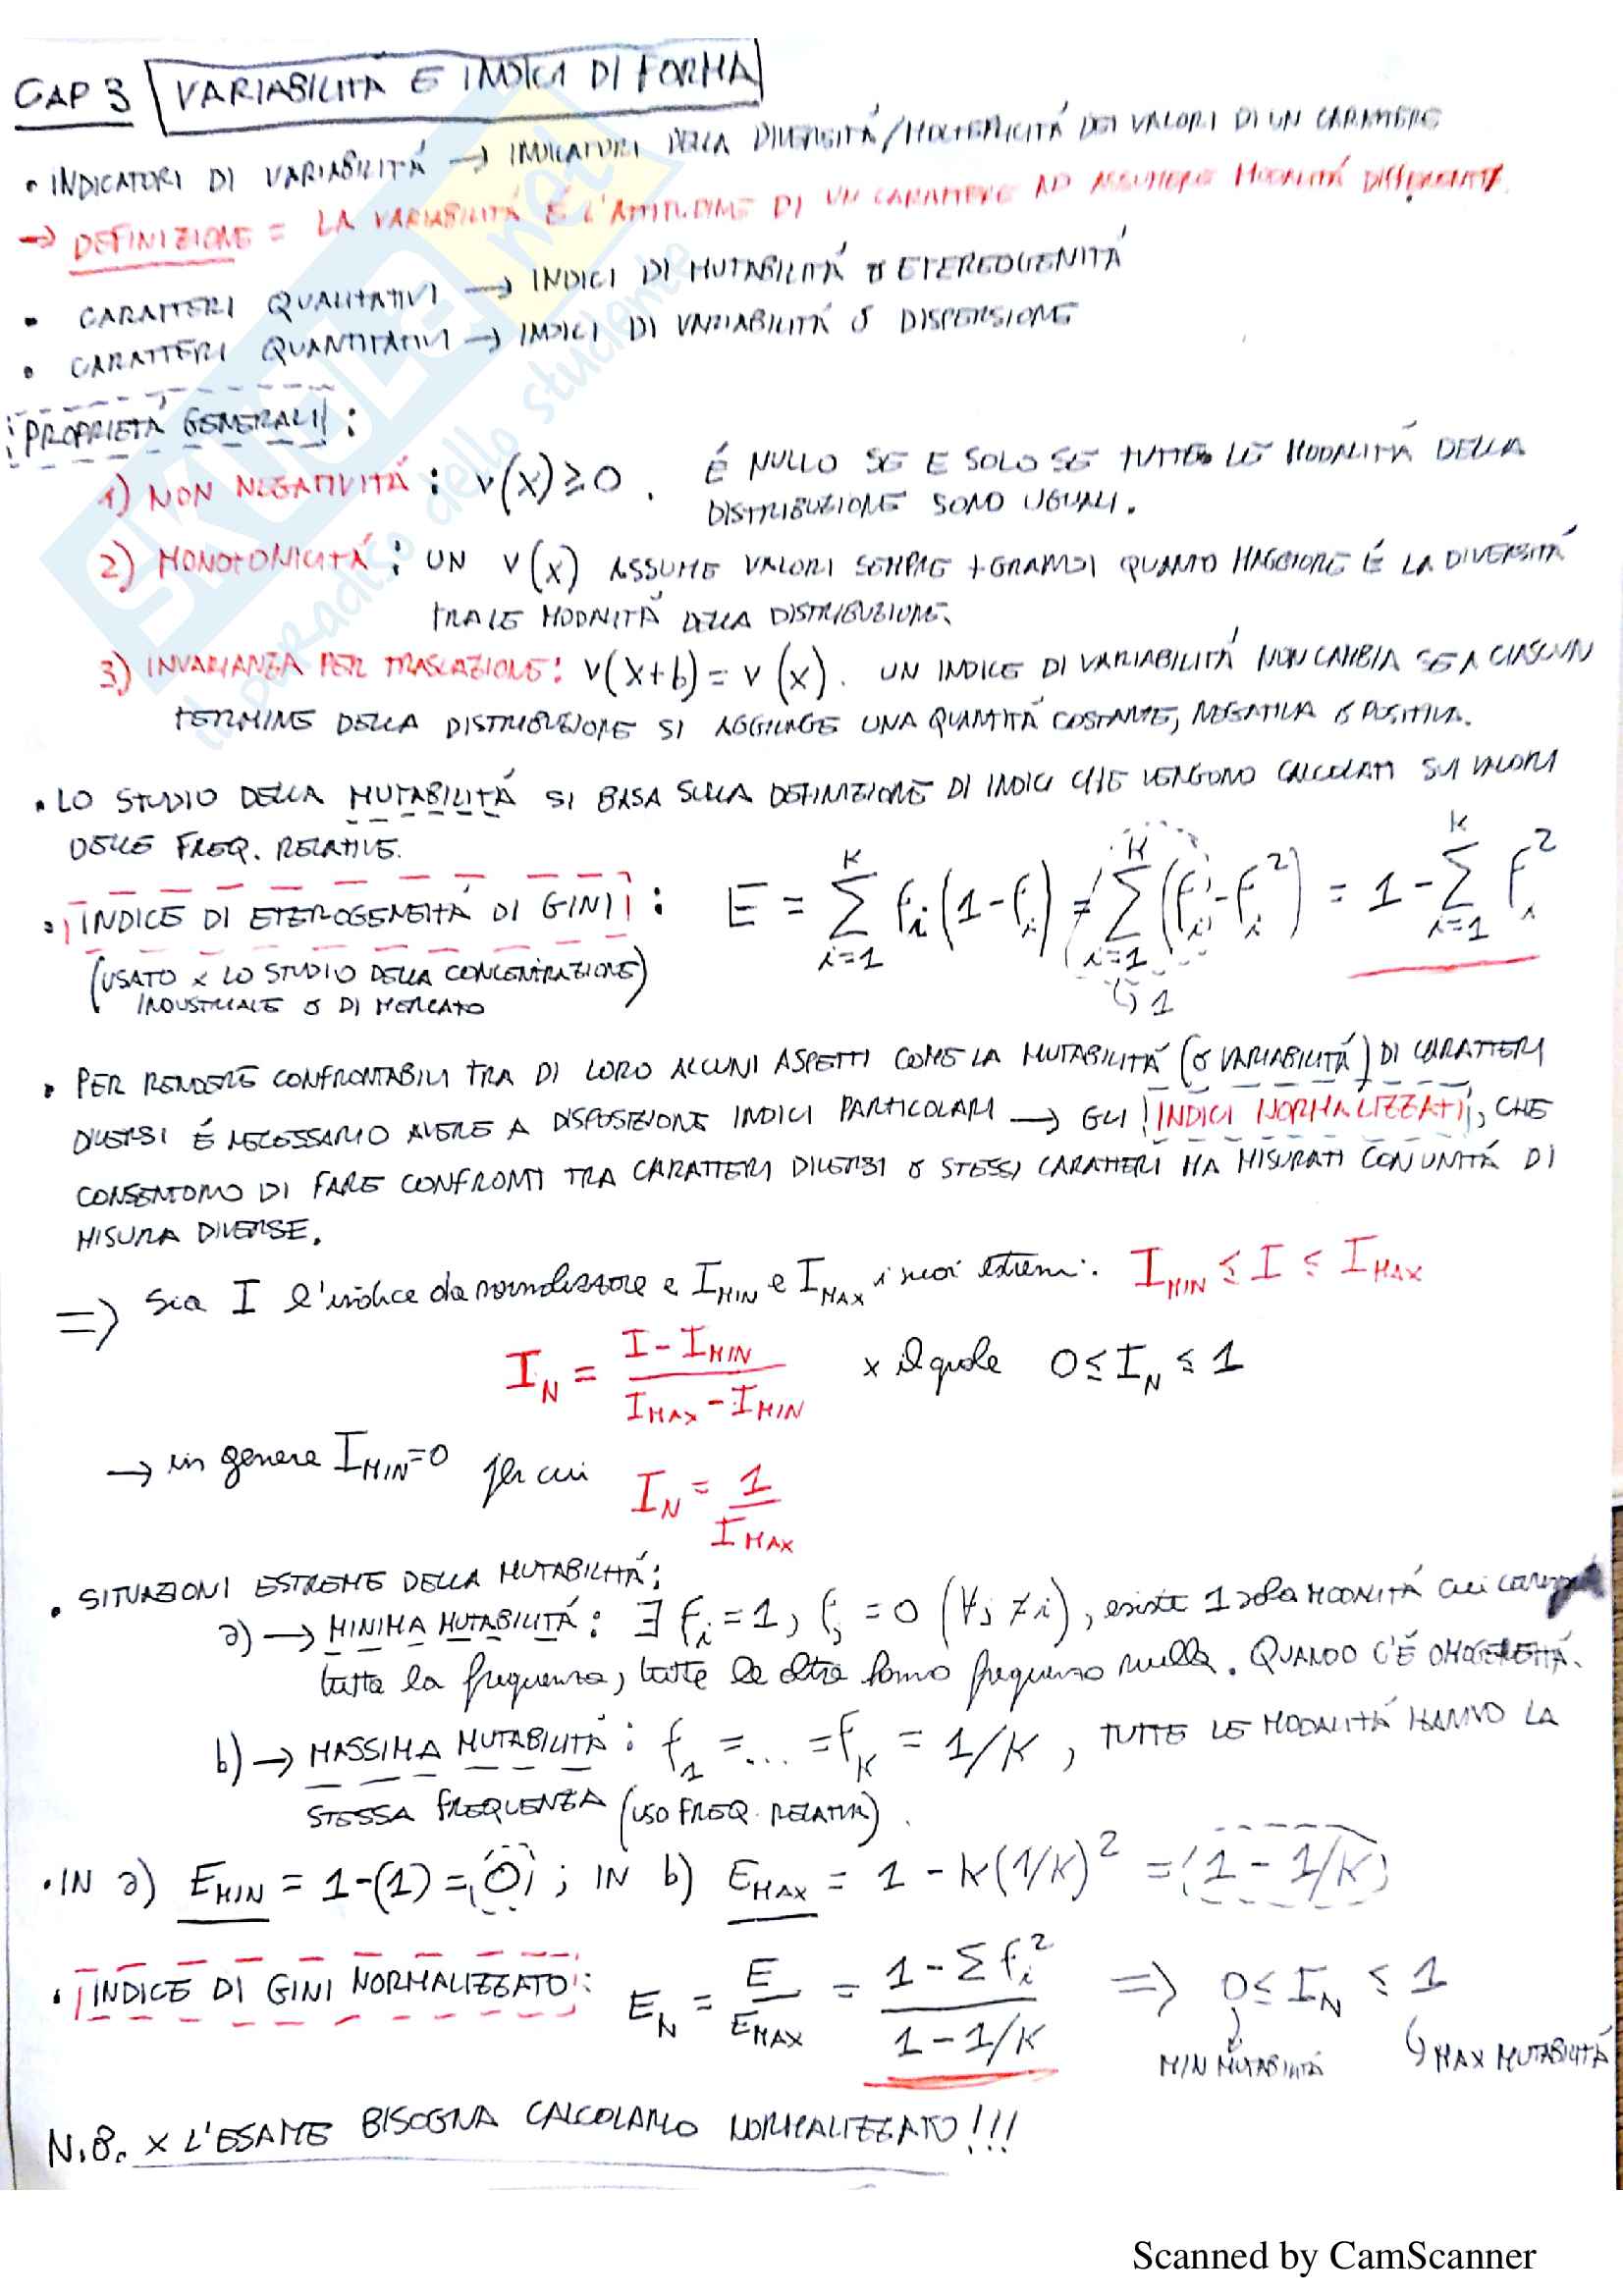 CAP 3 VARIABILITÁ E INDICI DI FORMA
• INDICATORI DI VARIABILITÁ → INDICATORI DELLA DIVERSITÁ/MOLTEPLICITÁ DEI VALORI DI UN CARATTERE
→ DEFINIZIONE = LA VARIABILITÁ É L'ATTITUDINE DI UN CARATTERE AD ASSUMERE MODALITÁ DIFFERENTI.
• CARATTERI QUALITATIVI → INDICI DI MUTABILITÁ O ETEREOGENITÁ
• CARATTERI QUANTITATIVI → INDICI DI VARIABILITÁ O DISPERSIONE
PROPRIETÁ GENERALI:
1) NON NEGATIVITÁ: v(x)≥0. É NULLO SE E SOLO SE TUTTE LE MODALITÁ DELLA
DISTRIBUZIONE SONO UGUALI.
2) MONOTONICITÁ: UN v(x) ASSUME VALORI SEMPRE +GRANDI QUANTO MAGGIORE É LA DIVERSITÁ
TRA LE MODALITÁ DELLA DISTRIBUZIONE.
3) INVARIANZA PER TRASLAZIONE: v(x+b) = v(x). UN INDICE DI VARIABILITÁ NON CAMBIA SE A CIASCUN
TERMINE DELLA DISTRIBUZIONE SI AGGIUNGE UNA QUANTITÁ COSTANTE, NEGATIVA O POSITIVA.
• LO STUDIO DELLA MUTABILITÁ SI BASA SULLA DEFINIZIONE DI INDICI CHE VENGONO CALCOLATI SUI VALORI
DELLE FREQ. RELATIVE.
• INDICE DI ETEROGENEITÁ DI GINI: E = Σ_{i=1}^{K} f_i(1-f_i) = Σ_{i=1}^{K} (f_i - f_i²) = 1 - Σ_{i=1}^{K} f_i²
↳ 1
(USATO x LO STUDIO DELLA CONCENTRAZIONE
INDUSTRIALE O DI MERCATO)
• PER RENDERE CONFRONTABILI TRA DI LORO ALCUNI ASPETTI COME LA MUTABILITÁ (O VARIABILITÁ) DI CARATTERI
DIVERSI É NECESSARIO AVERE A DISPOSIZIONE INDICI PARTICOLARI → GLI INDICI NORMALIZZATI, CHE
CONSENTONO DI FARE CONFRONTI TRA CARATTERI DIVERSI O STESSI CARATTERI MA MISURATI CON UNITÁ DI
MISURA DIVERSE.
⇒ Sia I l'indice da normalizzare e I_MIN e I_MAX i suoi estremi: I_MIN ≤ I ≤ I_MAX
I_N = (I - I_MIN)/(I_MAX - I_MIN) x il quale 0 ≤ I_N ≤ 1
→ in genere I_MIN=0 per cui I_N = 1/I_MAX
• SITUAZIONI ESTREME DELLA MUTABILITÁ:
a) → MINIMA MUTABILITÁ: ∃ f_i = 1, f_j = 0 (∀j ≠ i), esiste 1 sola MODALITÁ cui
tutta la frequenza, tutte le altre hanno frequenza nulla. QUANDO C'É OMOGENEITÁ.
b) → MASSIMA MUTABILITÁ: f_1 = ... = f_K = 1/K, TUTTE LE MODALITÁ HANNO LA
STESSA FREQUENZA (USO FREQ. RELATIVA).
• IN a) E_MIN = 1-(1) = 0; IN b) E_MAX = 1 - K(1/K)² = 1 - 1/K
• INDICE DI GINI NORMALIZZATO: E_N = E/E_MAX = (1 - Σ f_i²)/(1 - 1/K) ⇒ 0 ≤ I_N ≤ 1
MIN MUTABILITÁ ↳ MAX MUTABILITÁ
N.B. x L'ESAME BISOGNA CALCOLARLO NORMALIZZATO!!!
SKUOLA.net
il paradiso dello studente
Scanned by CamScanner